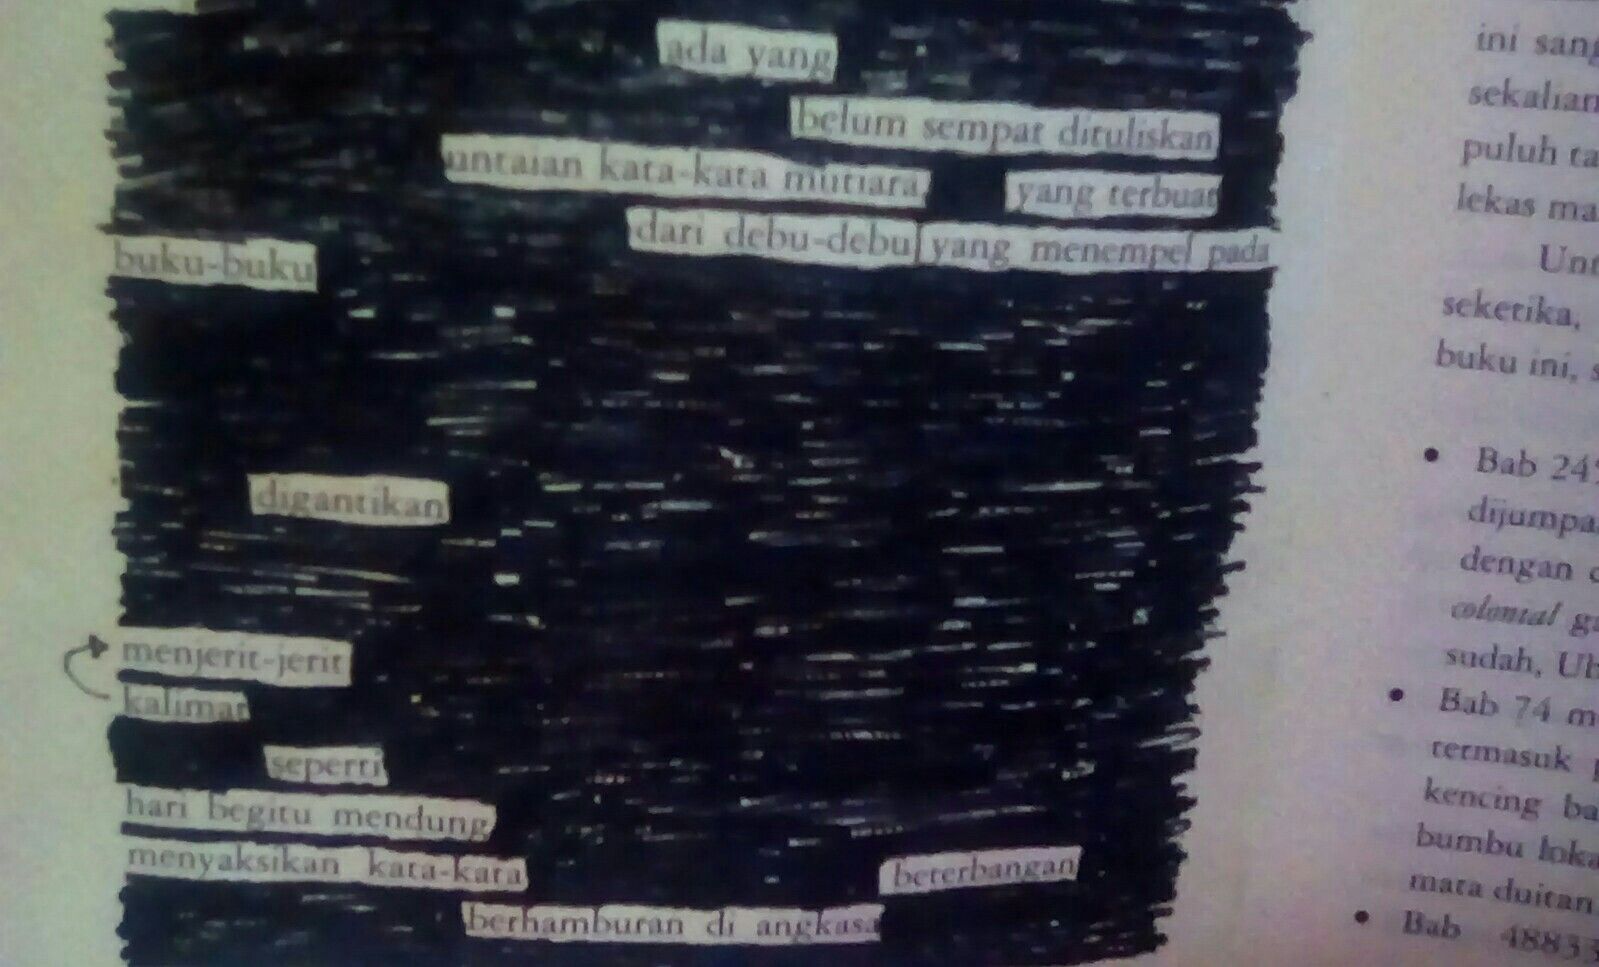 ada yang
belum sempat dituliskan
untaian kata-kata mutiara, yang terbuat
dari debu-debu yang menempel pada
buku-buku
digantikan
menjerit-jerit
kalimat
seperti
hari begitu mendung
menyaksikan kata-kata beterbangan
berhamburan di angkasa
ini
sekalian
puluh
lekas
seketika,
buku ini,
• Bab
dengan
colonial
sudah,
• Bab 74
termasuk
kencing
bumbu
mata duitan
• Bab